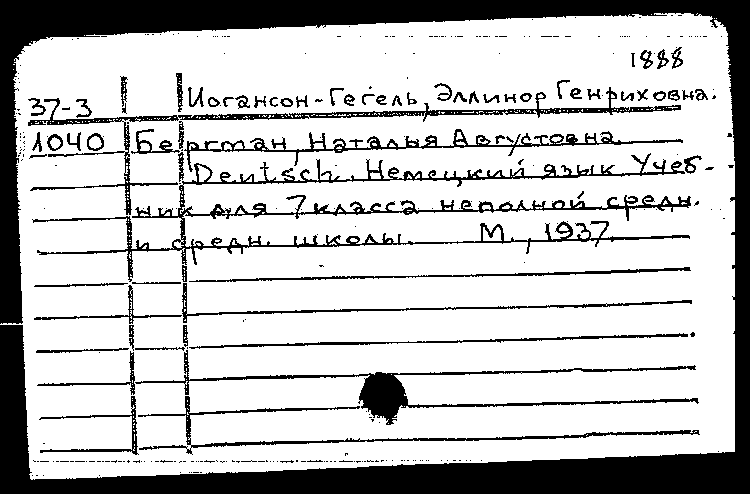 1888
37-3 Иогансон-Гегель, Эллинор Генриховна.
1040 Бергман, Наталья Августовна.
Deutsch. Немецкий язык Учеб-
ник для 7 класса неполной средн.
и средн. школы. М., 1937.